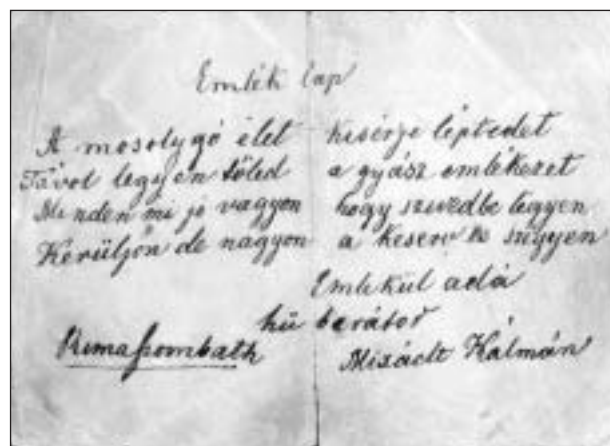 Emlék lap
A mosolygó élet kisérje léptedet
Távol legyen tőled a gyász emlékezet
Minden mi jó vagyon hogy szivedbe legyen
Kerüljön de nagyon a keserv és szégyen
Emlékül adá
hű barátod
Rimaszombath Kálmán